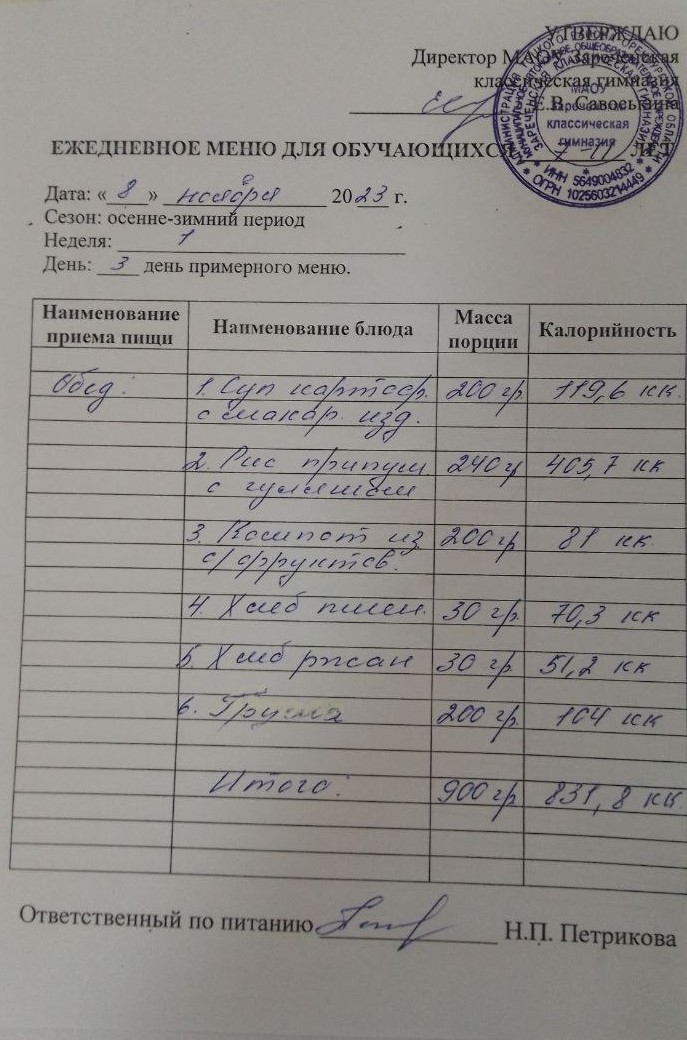 УТВЕРЖДАЮ
Директор МАОУ Зареченская
классическая гимназия
Е.В. Савоськина
АДМИНИСТРАЦИЯ ТОЦКОГО РАЙОНА ОРЕНБУРГСКОЙ ОБЛАСТИ
МУНИЦИПАЛЬНОЕ АВТОНОМНОЕ ОБЩЕОБРАЗОВАТЕЛЬНОЕ УЧРЕЖДЕНИЕ
ЗАРЕЧЕНСКАЯ КЛАССИЧЕСКАЯ ГИМНАЗИЯ
МАОУ
Зареченская
классическая
гимназия
* ИНН 5649004832 *
* ОГРН 1025603214449 *
ЕЖЕДНЕВНОЕ МЕНЮ ДЛЯ ОБУЧАЮЩИХСЯ 7-11 ЛЕТ
Дата: « 8 » ноября 2023 г.
Сезон: осенне-зимний период
Неделя: 1
День: 3 день примерного меню.
Наименование приема пищи Наименование блюда Масса порции Калорийность
Обед: 1. Суп картоф. 200 гр. 119,6 кк.
с макар. изд.
2. Рис припущ. 240 г 405,7 кк
с гуляшом
3. Компот из 200 гр 81 кк.
с/фруктов.
4. Хлеб пшен. 30 гр. 70,3 кк
5. Хлеб ржан 30 гр. 51,2 кк
6. Груша 200 гр. 104 кк
Итого: 900 гр 831,8 кк.
Ответственный по питанию Н.П. Петрикова